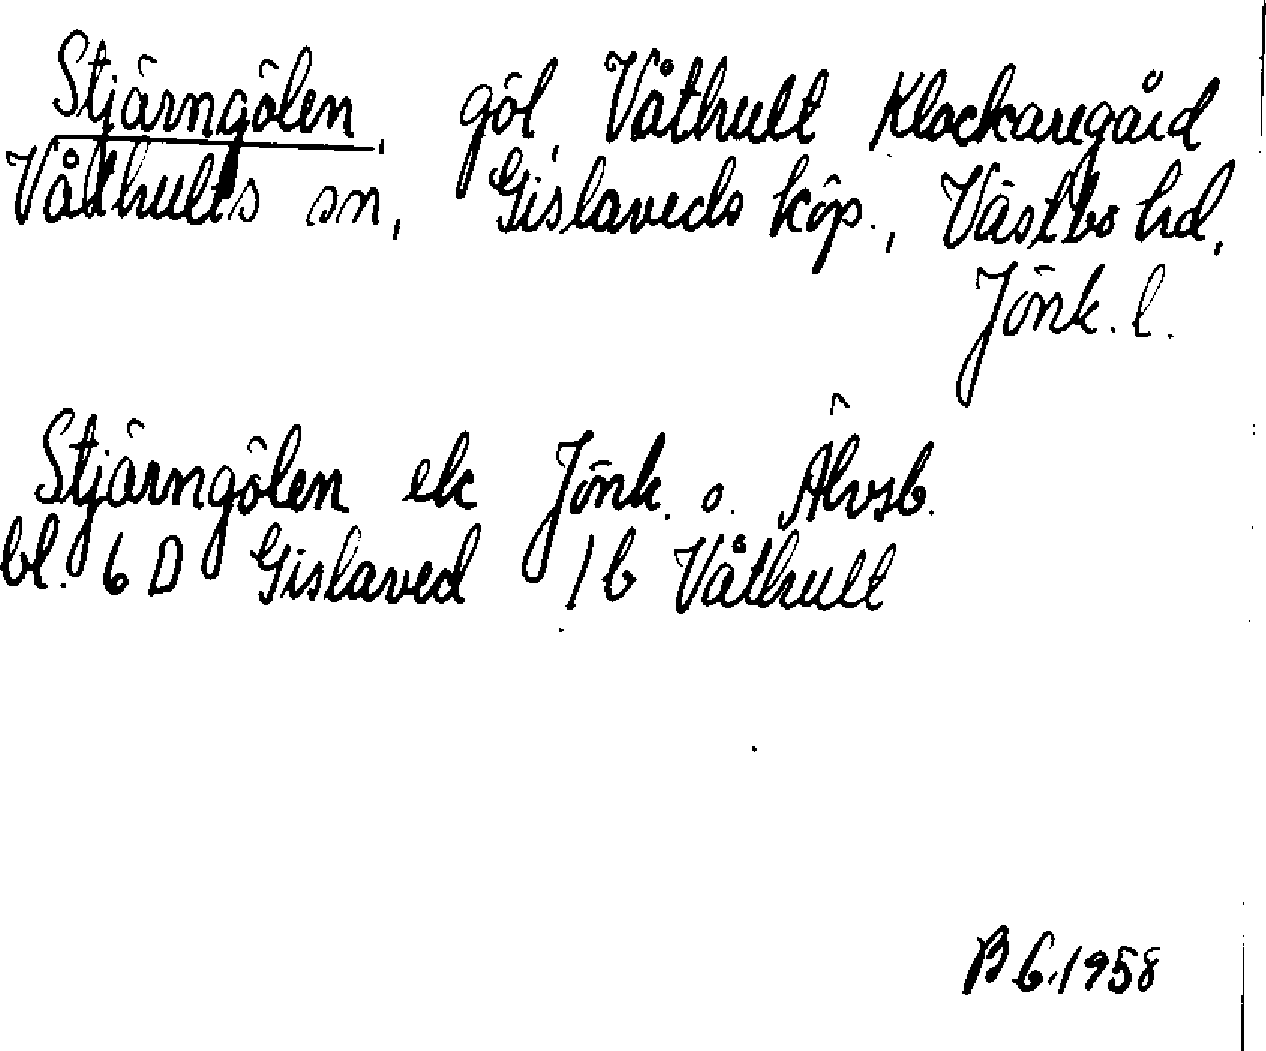 Stjärngölen, göl, Våthult Klockaregård
Våthults sn, Gislaveds köp., Västbo hd,
Jönk. l.
Stjärngölen ek Jönk. o. Älvsb.
bl. 6 D Gislaved 1 b Våthult
B G. 1958